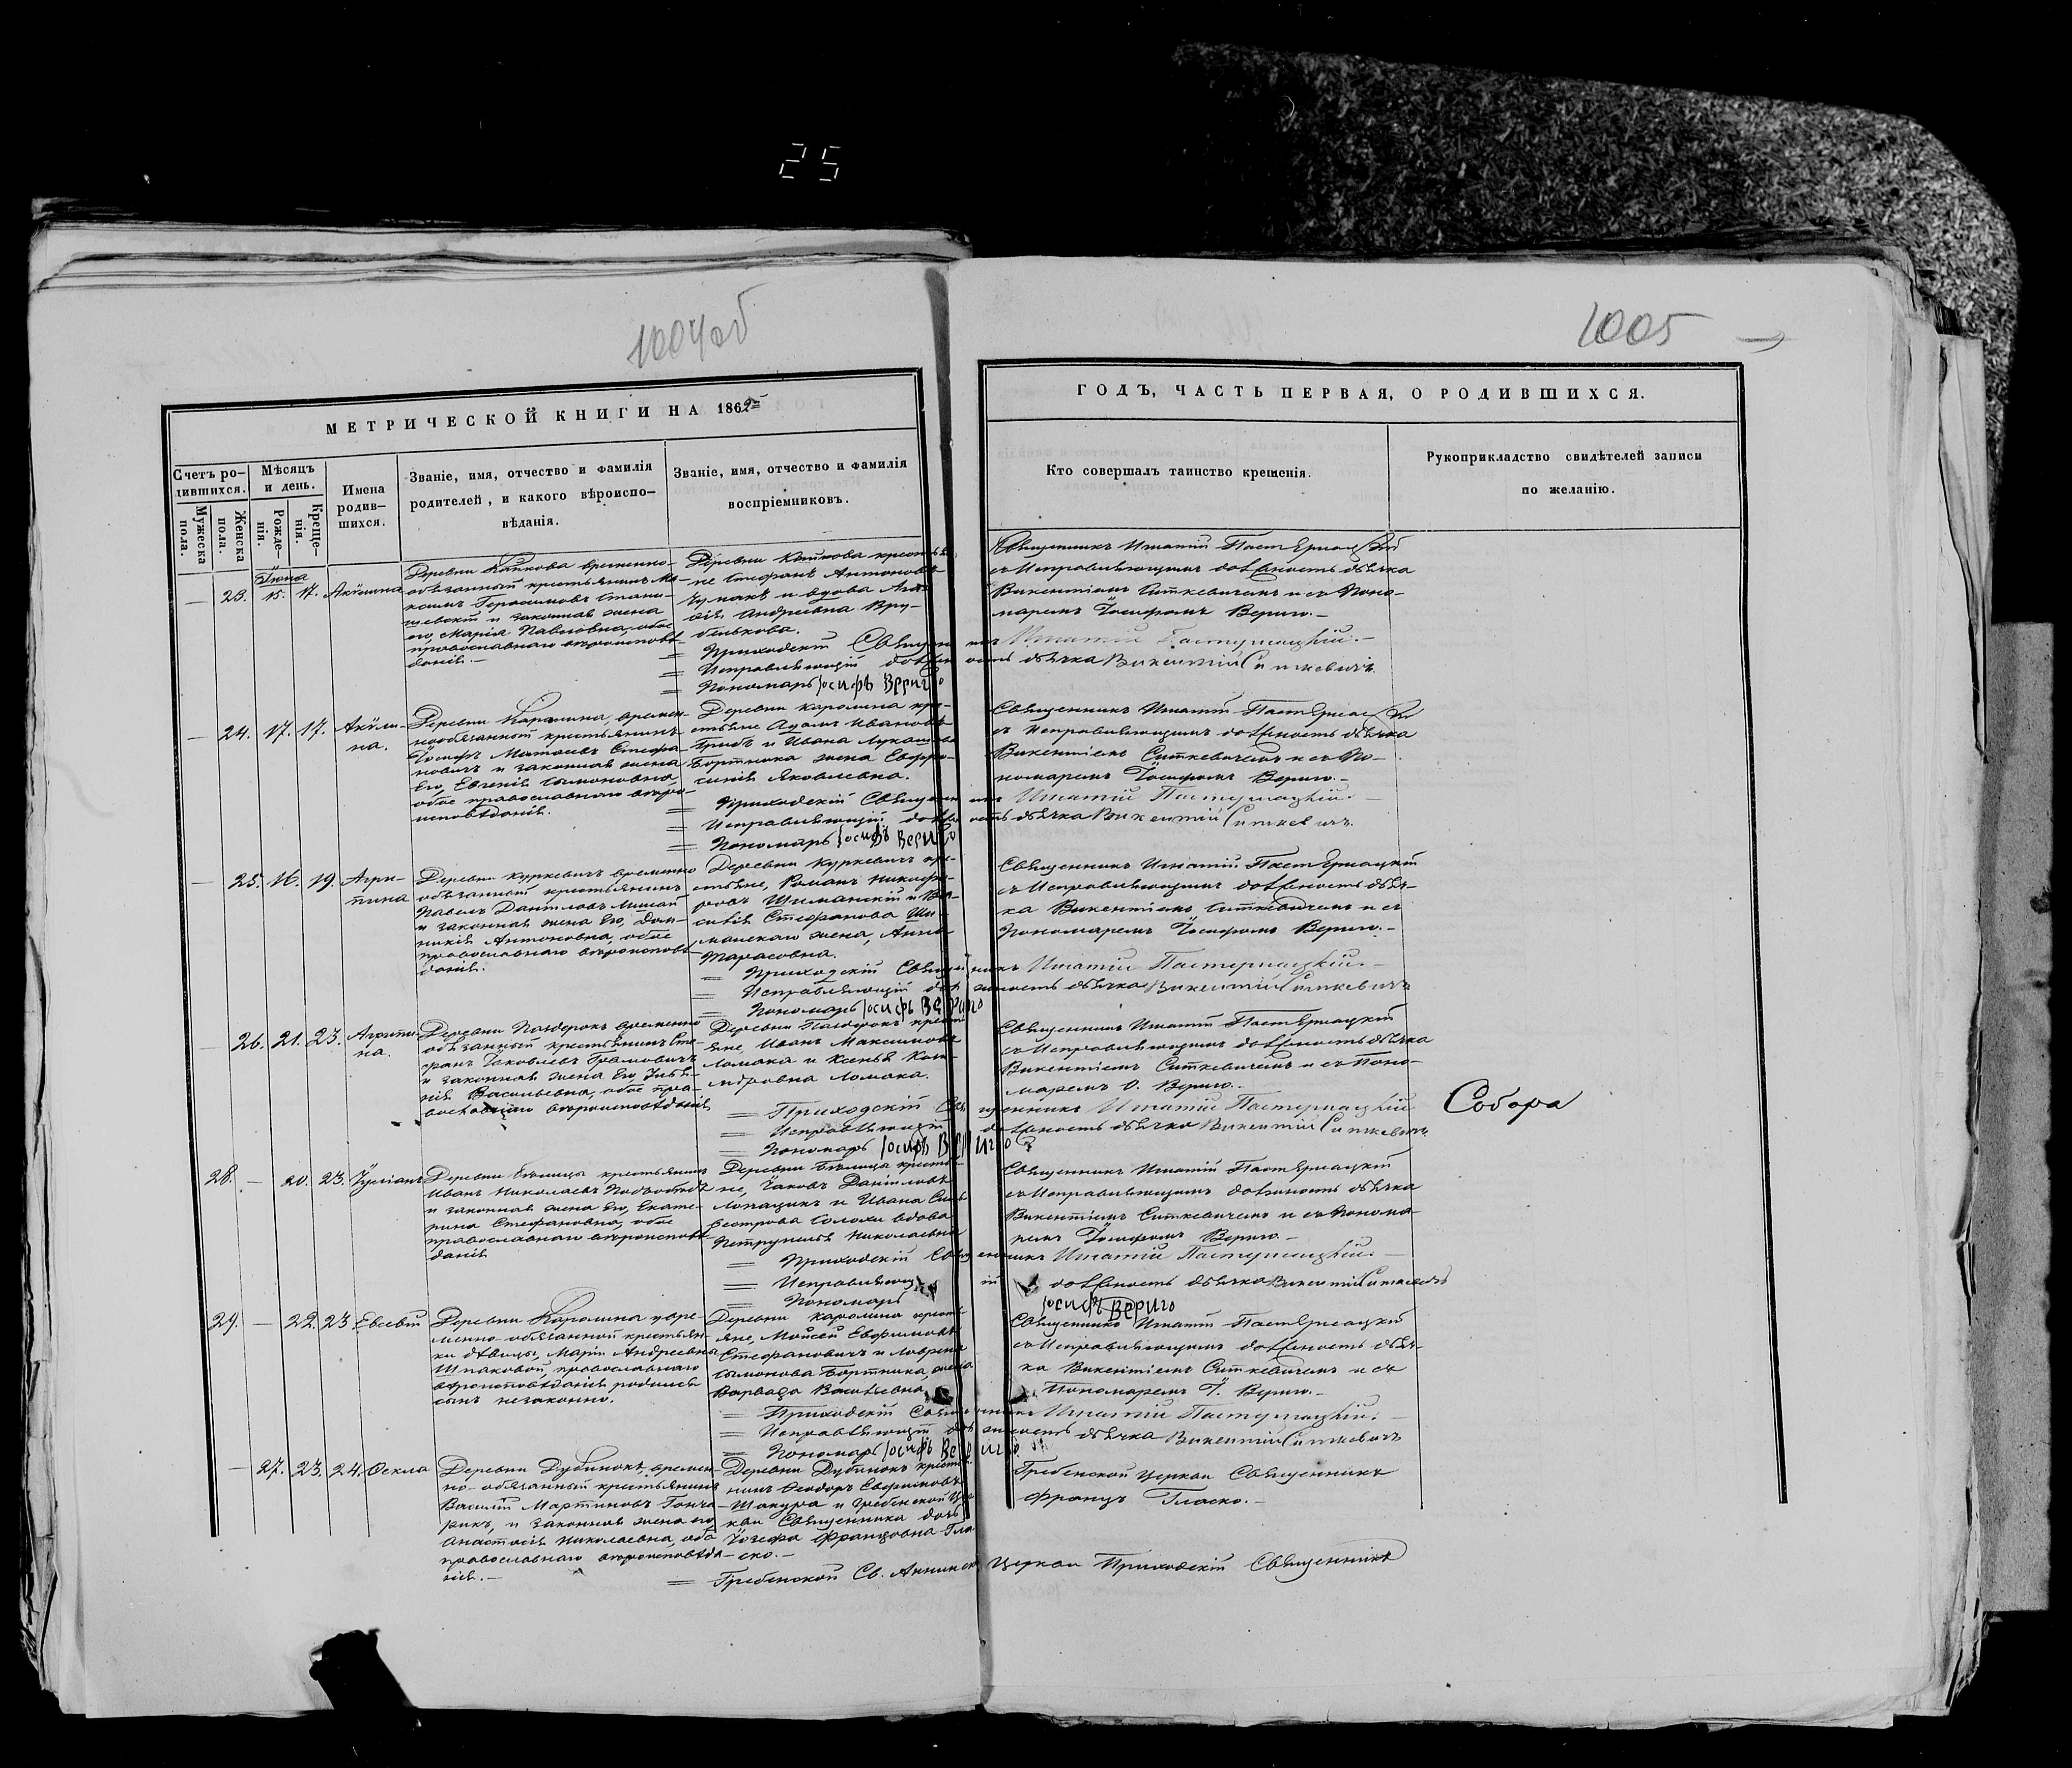 25
1004 об
1005
МЕТРИЧЕСКОЙ КНИГИ НА 1862й
ГОДЪ, ЧАСТЬ ПЕРВАЯ, О РОДИВШИХСЯ.
Счетъ ро-
дившихся.
Мужеска
пола.
Женска
пола.
Мѣсяцъ
и день.
Рожде-
нія.
Креще-
нія.
Имена
родив-
шихся.
Званіе, имя, отчество и фамилія
родителей, и какого вѣроиспо-
вѣданія.
Званіе, имя, отчество и фамилія
воспріемниковъ.
Кто совершалъ таинство крещенія.
Рукоприкладство свидѣтелей записи
по желанію.
Іюня
— 23. 15. 17. Акулина
Деревни временно-
обязанный крестьянинъ Ма-
ксимъ Герасимовъ
и законная жена
его, Марія Павловна, обое
православнаго вѣроисповѣ-
данія.—
Деревни крестья-
не Стефанъ Антоновъ
и вдова Ага-
ѳія Андреевна
Священникъ Игнатій Пастернацкій
съ Исправляющимъ должность дьячка
Викентіемъ Ситкевичемъ и съ Поно-
маремъ Іосифомъ Вериго.—
= Приходскій Священникъ Игнатій Пастернацкій.—
= Исправляющій должность дьячка Викентій Ситкевичъ
= Пономарь Іосифъ Вериго
— 24. 17. 17. Акули-
на.
Деревни Каролина, времен-
нообязанный крестьянинъ
Іосифъ Матвѣевъ Стефа-
новичъ и законная жена
Его, Евгенія Самоновна,
обое православнаго вѣро-
исповѣданія.
Деревни Каролина кре-
стьяне Адамъ Ивановъ
Грибъ и Ивана Лукашова
Бортника жена Евфро-
синія Яковлевна.
Священникъ Игнатій Пастернацкій
съ Исправляющимъ должность дьячка
Викентіемъ Ситкевичемъ и съ По-
номаремъ Іосифомъ Вериго.—
= Приходскій Священникъ Игнатій Пастернацкій.—
= Исправляющій должность дьячка Викентій Ситкевичъ.
= Пономарь Іосифъ Вериго
— 25. 16. 19. Агри-
пина
Деревни Куркевичъ временно
обязанный крестьянинъ
Павелъ Даниловъ
и законная жена Его, Дом-
никія Антоновна, обое
православнаго вѣроисповѣ-
данія.
Деревни Куркевичъ кре-
стьяне, Романъ Никифо-
ровъ Шиманскій и Ва-
силія Стефанова Ши-
манскаго жена, Анна
Тарасовна.
Священникъ Игнатій Пастернацкій
съ Исправляющимъ должность дьяч-
ка Викентіемъ Ситкевичемъ и съ
Пономаремъ Іосифомъ Вериго.—
= Приходскій Священникъ Игнатій Пастернацкій.—
= Исправляющій должность дьячка Викентій Ситкевичъ
= Пономарь Іосифъ Вериго
— 26. 21. 23. Агрипи-
на.
Деревни Паздерокъ временно
обязанный крестьянинъ Сте-
фанъ Яковлевъ
и законная жена Его,
Васильевна, обое пра-
вославнаго вѣроисповѣданія
Деревни Паздерокъ кресть-
яне, Иванъ Максимовъ
Ломака и Ксенія
Ломака.
Священникъ Игнатій Пастернацкій
съ Исправляющимъ должность дьячка
Викентіемъ Ситкевичемъ и съ Поно-
маремъ О. Вериго.—
= Приходскій Священникъ Игнатій Пастернацкій
Собора
= Исправляющій должность дьячка Викентій Ситкевичъ.
= Пономарь Іосифъ Вериго
28. — 20. 23. Іуліанъ
Деревни Бѣлица крестьянинъ
Иванъ Николаевъ
и законная жена Его, Екате-
рина Стефановна, обое
православнаго вѣроисповѣ-
данія
Деревни Бѣлица крестья-
не, Яковъ Даниловъ
и Ивана
вдова
Петрунеля Николаевна
Священникъ Игнатій Пастернацкій
съ Исправляющимъ должность дьячка
Викентіемъ Ситкевичемъ и съ Понома-
ремъ Іосифомъ Вериго.—
= Приходскій Священникъ Игнатій Пастернацкій.—
= Исправляющій должность дьячка Викентій Ситкевичъ
= Пономарь Іосифъ Вериго
29. — 22. 23 Евсевій
Деревни Каролина у вре-
менно-обязанной крестьян-
ки дѣвицы, Маріи Андреевны
Шпаковой, православнаго
вѣроисповѣданія родился
сынъ незаконно.
Деревни Каролина кресть-
яне, Моисей Евфимовъ
Стефановичъ и Лаврена
Самонова Бортника, жена
Варвара Васильевна.
Священникъ Игнатій Пастернацкій
съ Исправляющимъ должность дьяч-
ка Викентіемъ Ситкевичемъ и съ
Пономаремъ І. Вериго.—
= Приходскій Священникъ Игнатій Пастернацкій.—
= Исправляющій должность дьячка Викентій Ситкевичъ
= Пономарь Іосифъ Вериго
— 27. 23. 24. Ѳекла
Деревни Дубинокъ, времен-
но-обязанный крестьянинъ
Василій Мартиновъ Гонча-
рикъ, и законная жена его
Анастасія Николаевна, оба
православнаго вѣроисповѣда-
нія.—
Деревни Дубинокъ крестья-
нинъ Ѳеодоръ Евфимовъ
и Гребенской Цер-
кви Священника дочь
Іозефа Францовна Гла-
ско.—
Гребенской Церкви Священникъ
Францъ Гласко.—
= Гребенской Св. Аннинской Церкви Приходскій Священникъ